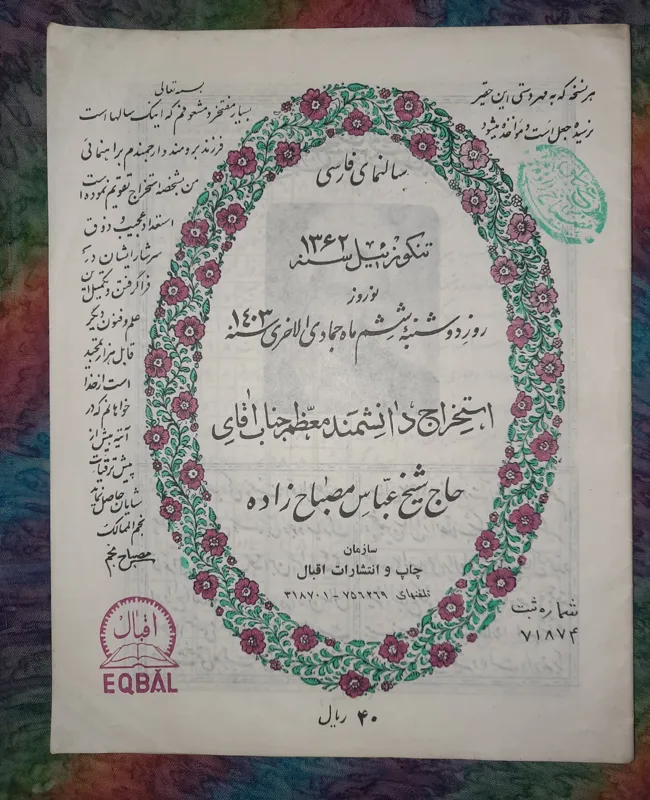 هر نسخه که به مهر دستی این حقیر
نرسیده جعل است و مؤاخذه میشود
بسمه تعالی
بسیار مفتخر و مشعوفم که اینک سالها است
فرزند برومند ارجمندم براهنمائی
من بشخصه استخراج تقویم نموده است
استعداد عجیب و ذوق
سرشار ایشان در
فرا گرفتن و تکمیل این
علم و فنون دیگر
قابل هزار تمجید
است از خدا
خواهانم که در
آتیه بیش از
پیش ترقیات
شایان حاصل نماید
نجم الممالک
مصباح منجم
سالنمای فارسی
تنگوزئیل سنه ۱۳۶۲
نوروز
روز دوشنبه ششم ماه جمادی الاخری سنه ۱۴۰۳
استخراج دانشمند معظم جناب آقای
حاج شیخ عباس مصباح زاده
سازمان
چاپ و انتشارات اقبال
تلفنهای ۷۵۶۲۶۹ - ۳۱۸۷۰۱
شماره ثبت
۷۱۸۷۴
اقبال
EQBĂL
۴۰ ریال